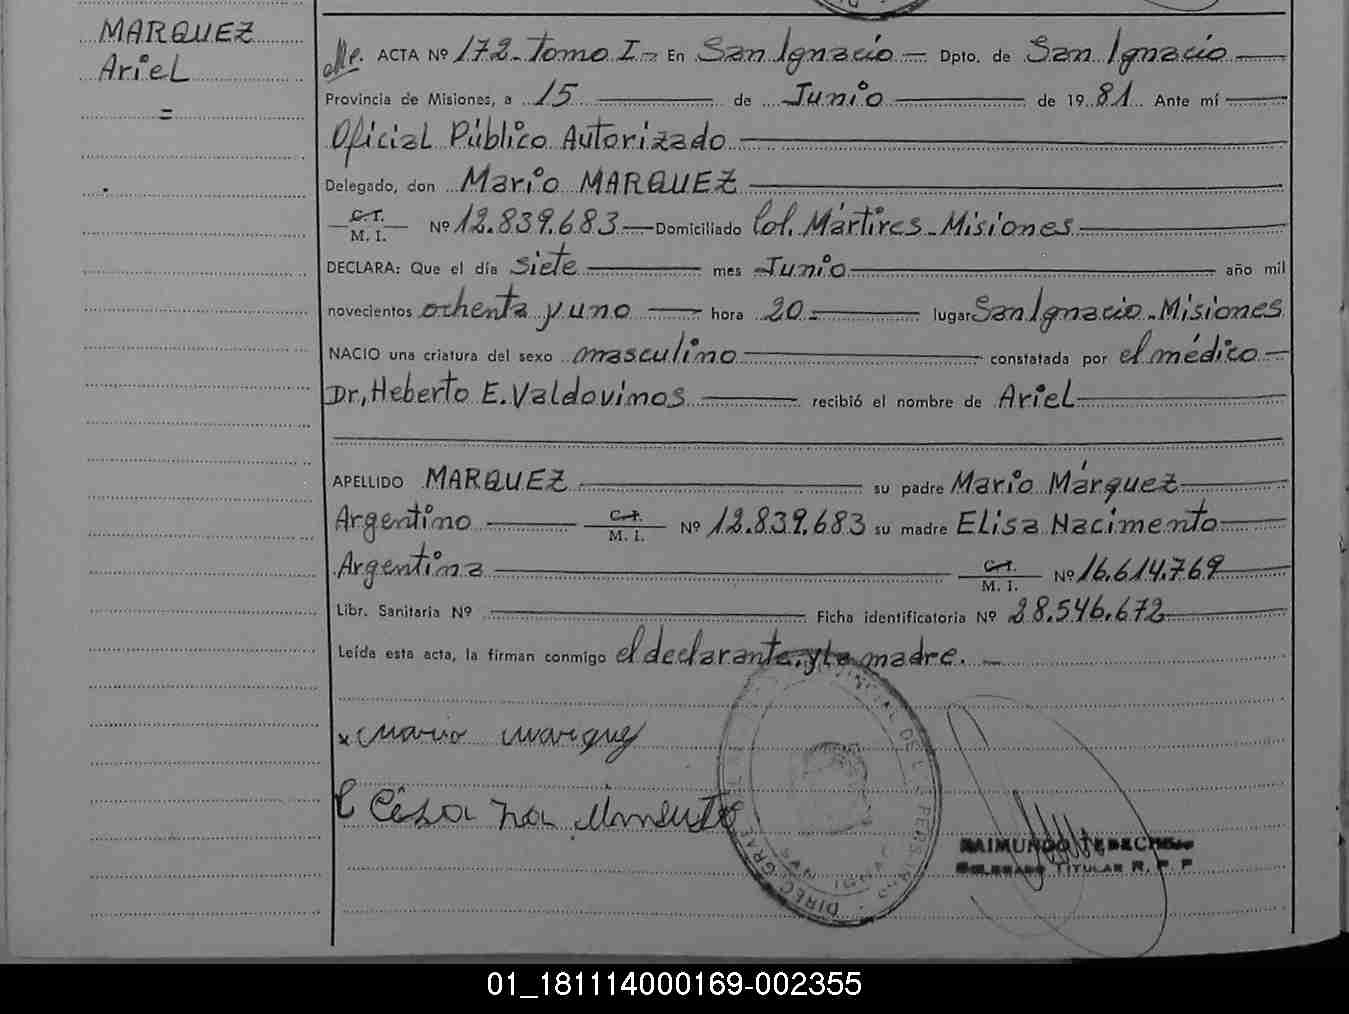 MARQUEZ
Ariel
=
ACTA Nº 172 - Tomo I - En San Ignacio - Dpto. de San Ignacio
Provincia de Misiones, a 15 de Junio de 1981 Ante mí
Oficial Público Autorizado
Delegado, don Mario MARQUEZ
C. I.
M. I. Nº 12.839.683 - Domiciliado Col. Mártires - Misiones
DECLARA: Que el día siete mes Junio año mil
novecientos ochenta y uno hora 20 lugar San Ignacio - Misiones
NACIO una criatura del sexo masculino constatada por el médico
Dr, Heberto E. Valdovinos recibió el nombre de Ariel
APELLIDO MARQUEZ su padre Mario Márquez
Argentino C. I. M. I. Nº 12.839.683 su madre Elisa Nacimento
Argentina C. I. M. I. Nº 16.614.769
Libr. Sanitaria Nº Ficha identificatoria Nº 28.546.672
Leída esta acta, la firman conmigo el declarante, y la madre.
x Mario Marquez
DIREC. GRAL. DE LAS PERSONAS
SAN IGNACIO
RAIMUNDO
DELEGADO TITULAR R. P. P
01_181114000169-002355